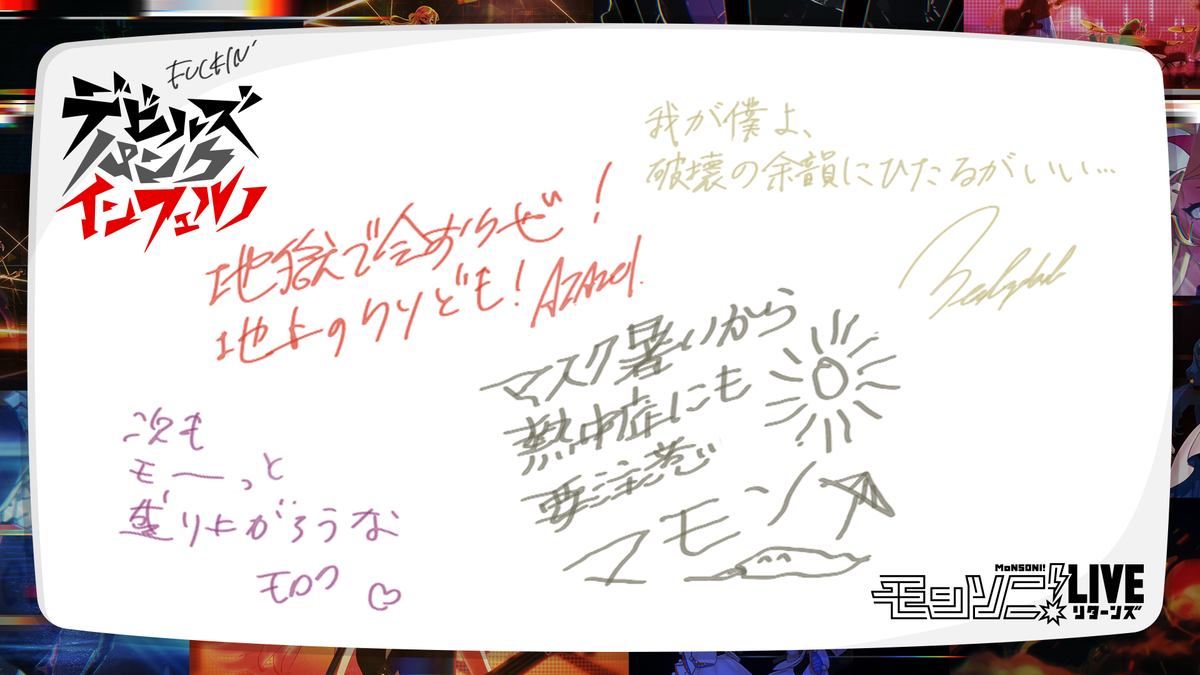 FUCKIN'
デビルズ
パンク
インフェルノ
我が僕よ、
破壊の余韻にひたるがいい…
地獄で会おうぜ!
地上のクソども! AZAZEL
マスク暑いから
熱中症にも
要注意
マモン
次も
モ〜っと
盛り上がろうな
モロク
MONSONI!
モンソニ!LIVE
リターンズ